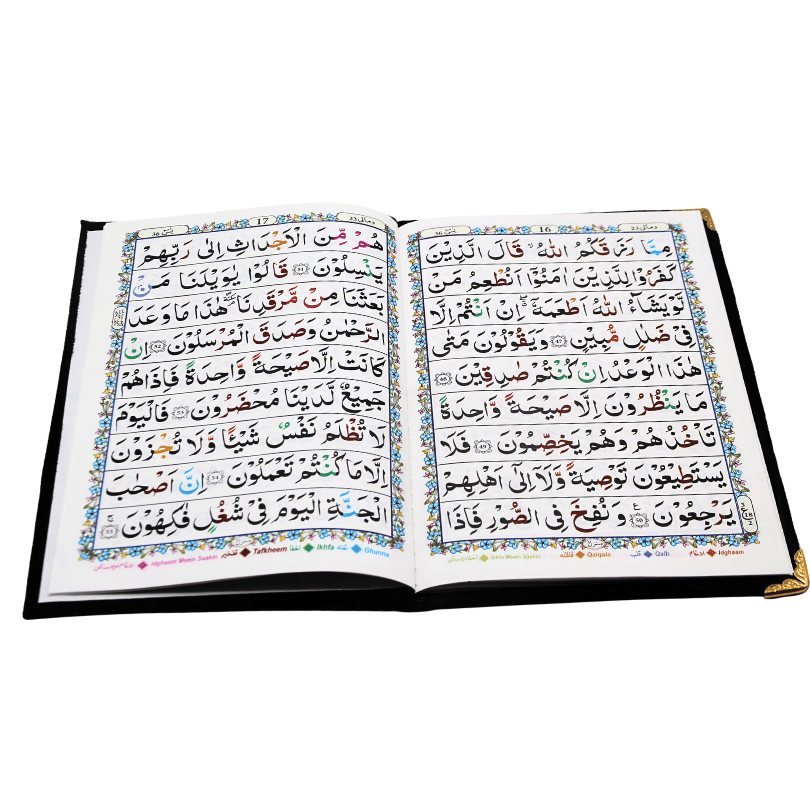 ومالی 23
16
یٰسٓ 36
مِمَّا رَزَقَكُمُ اللّٰهُ ۙ قَالَ الَّذِيْنَ
كَفَرُوْا لِلَّذِيْنَ اٰمَنُوْۤا اَنُطْعِمُ مَنْ
لَّوْ يَشَآءُ اللّٰهُ اَطْعَمَهٗۤ ۖ اِنْ اَنْتُمْ اِلَّا
فِيْ ضَلٰلٍ مُّبِيْنٍ ﴿47﴾ وَيَقُوْلُوْنَ مَتٰى
هٰذَا الْوَعْدُ اِنْ كُنْتُمْ صٰدِقِيْنَ ﴿48﴾
مَا يَنْظُرُوْنَ اِلَّا صَيْحَةً وَّاحِدَةً
تَاْخُذُهُمْ وَهُمْ يَخِصِّمُوْنَ ﴿49﴾ فَلَا
يَسْتَطِيْعُوْنَ تَوْصِيَةً وَّلَاۤ اِلٰٓى اَهْلِهِمْ
يَرْجِعُوْنَ ﴿50﴾ ع وَنُفِخَ فِي الصُّوْرِ فَاِذَا
ع 18 2
Idghaam
Qalb قلب
Qalqala قلقله
Ikhfa Meem Saakin
ومالی 23
17
یٰسٓ 36
هُمْ مِّنَ الْاَجْدَاثِ اِلٰى رَبِّهِمْ
يَنْسِلُوْنَ ﴿51﴾ قَالُوْا يٰوَيْلَنَا مَنْۢ
بَعَثَنَا مِنْ مَّرْقَدِنَا هٰذَا مَا وَعَدَ
الرَّحْمٰنُ وَصَدَقَ الْمُرْسَلُوْنَ ﴿52﴾ اِنْ
كَانَتْ اِلَّا صَيْحَةً وَّاحِدَةً فَاِذَا هُمْ
جَمِيْعٌ لَّدَيْنَا مُحْضَرُوْنَ ﴿53﴾ فَالْيَوْمَ
لَا تُظْلَمُ نَفْسٌ شَيْـًٔا وَّلَا تُجْزَوْنَ
اِلَّا مَا كُنْتُمْ تَعْمَلُوْنَ ﴿54﴾ اِنَّ اَصْحٰبَ
الْجَنَّةِ الْيَوْمَ فِيْ شُغُلٍ فٰكِهُوْنَ ﴿55﴾ ج
Ghunna غنّه
Ikhfa اخفا
Tafkheem تفخیم
Idghaam Meem Saakin